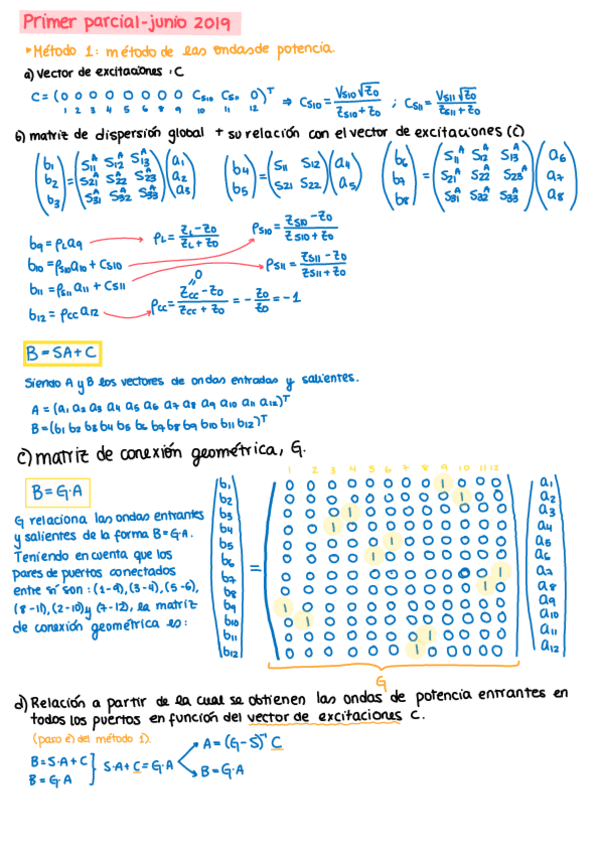 Primer parcial-junio 2019
▸Método 1: método de las ondas de potencia.
a) Vector de excitaciones, C
C = (0 0 0 0 0 0 0 0 0 Cs10 Cs11 0)ᵀ ⇒ Cs10 = Vs10 √Zo / Zs10 + Zo ; Cs11 = Vs11 √Zo / Zs11 + Zo
1 2 3 4 5 6 7 8 9 10 11 12
b) matriz de dispersión global + su relación con el vector de excitaciones (C)
(b1 b2 b3) = (S11ᴬ S12ᴬ S13ᴬ S21ᴬ S22ᴬ S23ᴬ S31ᴬ S32ᴬ S33ᴬ) (a1 a2 a3) (b4 b5) = (S11 S12 S21 S22) (a4 a5) (b6 b7 b8) = (S11ᴬ S12ᴬ S13ᴬ S21ᴬ S22ᴬ S23ᴬ S31ᴬ S32ᴬ S33ᴬ) (a6 a7 a8)
b9 = ρL a9 ρL = ZL - Zo / ZL + Zo ρs10 = Zs10 - Zo / Zs10 + Zo
b10 = ρs10 a10 + Cs10
b11 = ρs11 a11 + Cs11 ρs11 = Zs11 - Zo / Zs11 + Zo
0
b12 = ρcc a12 ρcc = Zcc - Zo / Zcc + Zo = - Zo / Zo = -1
B = SA + C
Siendo A y B los vectores de ondas entradas y salientes.
A = (a1 a2 a3 a4 a5 a6 a7 a8 a9 a10 a11 a12)ᵀ
B = (b1 b2 b3 b4 b5 b6 b7 b8 b9 b10 b11 b12)ᵀ
c) matriz de conexión geométrica, G.
B = G·A
G relaciona las ondas entrantes
y salientes de la forma B = G·A.
Teniendo en cuenta que los
pares de puertos conectados
entre sí son: (1-9), (3-4), (5-6),
(8-11), (2-10) y (7-12), la matriz
de conexión geométrica es:
1 2 3 4 5 6 7 8 9 10 11 12
b1 0 0 0 0 0 0 0 0 1 0 0 0 a1
b2 0 0 0 0 0 0 0 0 0 1 0 0 a2
b3 0 0 0 1 0 0 0 0 0 0 0 0 a3
b4 0 0 1 0 0 0 0 0 0 0 0 0 a4
b5 0 0 0 0 0 1 0 0 0 0 0 0 a5
b6 0 0 0 0 1 0 0 0 0 0 0 0 a6
b7 = 0 0 0 0 0 0 0 0 0 0 0 1 a7
b8 0 0 0 0 0 0 0 0 0 0 1 0 a8
b9 1 0 0 0 0 0 0 0 0 0 0 0 a9
b10 0 1 0 0 0 0 0 0 0 0 0 0 a10
b11 0 0 0 0 0 0 0 1 0 0 0 0 a11
b12 0 0 0 0 0 0 1 0 0 0 0 0 a12
G
d) Relación a partir de la cual se obtienen las ondas de potencia entrantes en
todos los puertos en función del vector de excitaciones C.
(paso e) del método 1).
B = S·A + C
B = G·A
S·A + C = G·A
A = (G - S)⁻¹ C
B = G·A